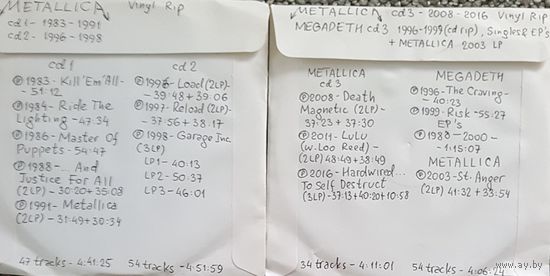 METALLICA Vinyl Rip
cd1 - 1983-1991
cd2 - 1996-1998
cd1
℗ 1983 - Kill 'Em All -
- 51:12
℗ 1984 - Ride The
Lighting - 47:34
℗ 1986 - Master Of
Puppets - 54:47
℗ 1988 - ... And
Justice For All
(2LP) - 30:20 + 35:08
℗ 1991 - Metallica
(2LP) - 31:49 + 30:34
47 tracks - 4:41:25
cd2
℗ 1996 - Load (2LP) -
- 39:48 + 39:06
℗ 1997 - Reload (2LP) -
- 37:56 + 38:17
℗ 1998 - Garage Inc.
(3LP)
LP1 - 40:13
LP2 - 50:37
LP3 - 46:01
54 tracks - 4:51:59
METALLICA cd3 - 2008-2016 Vinyl Rip
MEGADETH cd3 1996-1999 (cd rip), Singles & EP's
+ METALLICA 2003 LP
METALLICA
cd3
℗ 2008 - Death
Magnetic (2LP) -
- 37:23 + 37:30
℗ 2011 - Lulu
(w. Loo Reed) -
(2LP) 48:49 + 38:49
℗ 2016 - Hardwired...
To Self Destruct
(3LP) - 37:13 + 40:20 + 10:58
34 tracks - 4:11:01
MEGADETH
℗ 1996 - The Craving -
- 40:23
℗ 1999 - Risk - 55:27
EP's
℗ 1988 - 2000 -
- 1:15:07
METALLICA
℗ 2003 - St. Anger
(2LP) 41:32 + 33:54
54 tracks - 4:06:24
www.ay.by